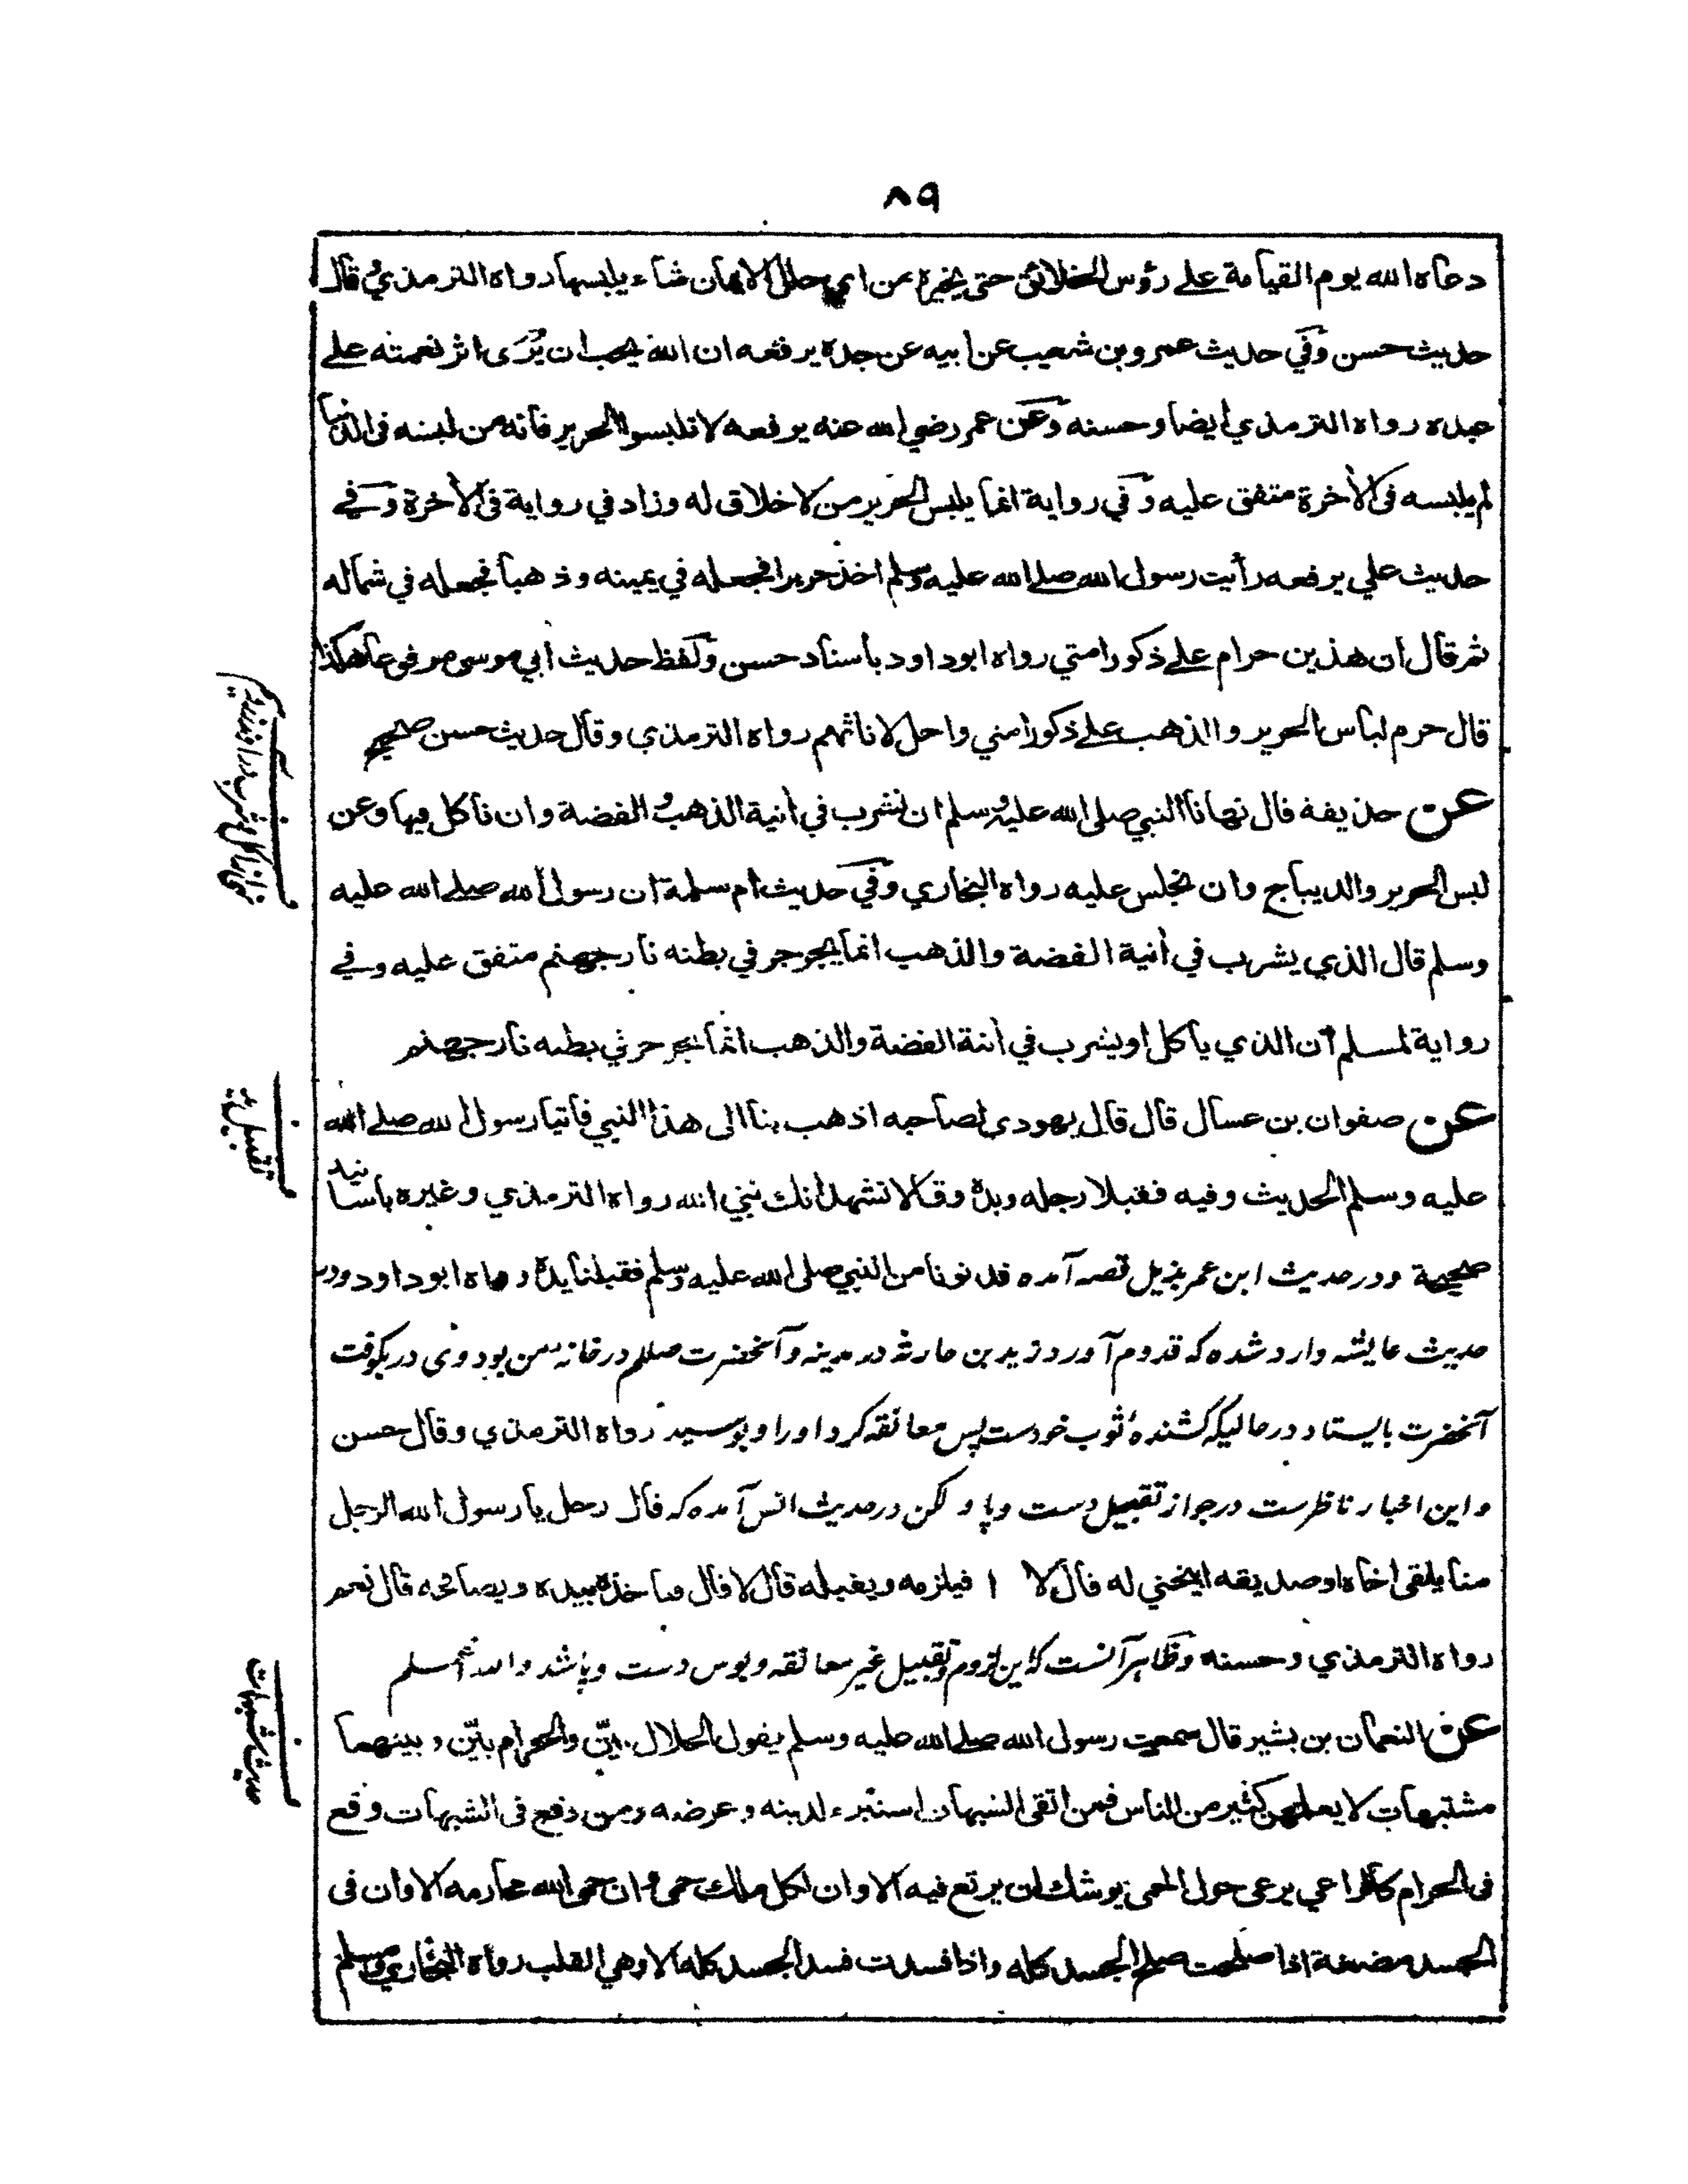 ٨٩
دعاه الله يوم القيامة على رؤس الخلائق حتى يخيره من اي حلل الايمان شاء يلبسها رواه الترمذي وقال
حديث حسن وفي حديث عمرو بن شعيب عن ابيه عن جده يرفعه ان الله يحب ان يُرَى اثر نعمته على
عبده رواه الترمذي ايضا وحسنه وعن عمر رضي الله عنه يرفعه لا تلبسوا الحرير فانه من لبسه فى الدنيا
لم يلبسه فى الأخرة متفق عليه وفي رواية انما يلبس الحرير من لا خلاق له وزاد في رواية فى الأخرة وفي
حديث علي يرفعه رأيت رسول الله صلى الله عليه وسلم اخذ حريرا فجعله في يمينه وذهبا فجعله في شماله
ثم قال ان هذين حرام على ذكور امتي رواه ابو داود باسناد حسن ولفظ حديث ابي موسى مرفوعا هكذا
قال حرم لباس الحرير والذهب على ذكور امتي واحل لاناثهم رواه الترمذي وقال حديث حسن صحيح
عن حذيفة قال نهانا النبي صلى الله عليه وسلم ان نشرب في أنية الذهب والفضة وان نأكل فيها وعن
لبس الحرير والديباج وان نجلس عليه رواه البخاري وفي حديث ام سلمة ان رسول الله صلى الله عليه
وسلم قال الذي يشرب في أنية الفضة والذهب انما يجرجر في بطنه نار جهنم متفق عليه وفي
رواية لمسلم ان الذي يأكل او يشرب في أنية الفضة والذهب انما يجرجر في بطنه نار جهنم
عن صفوان بن عسال قال قال يهودي لصاحبه اذهب بنا الى هذا النبي فأتيا رسول الله صلى الله
عليه وسلم الحديث وفيه فقبلا رجله ويده وقالا نشهد انك نبي الله رواه الترمذي وغيره باسانيد
صحيحة ودر حديث ابن عمر بذيل قصه آمده فدنونا من النبي صلى الله عليه وسلم فقبلنا يده رواه ابو داود ودر
حديث عايشه وارد شده كه قدوم آورد زيد بن حارثه در مدينه وآنحضرت صللم در خانهٔ من بود وى در بكوفت
آنحضرت بايستاد در حاليكه كشندهٔ ثوب خودست پس معانقه كرد اورا وبوسيد رواه الترمذي وقال حسن
واين اخبار ناظرست در جواز تقبيل دست وپا و لكن در حديث انس آمده كه قال رجل يا رسول الله الرجل
منا يلقى اخاه او صديقه اينحني له قال لا ا فيلزمه ويقبله قال لا قال فيأخذه بيده ويصافحه قال نعم
رواه الترمذي وحسنه وظاهر آنست كه اين لزوم وتقبيل غير معانقه وبوس دست وپا باشد والله اعلم
عن النعمان بن بشير قال سمعت رسول الله صلى الله عليه وسلم يقول الحلال بيّن والحرام بيّن وبينهما
مشتبهات لا يعلمهن كثير من الناس فمن اتقى الشبهات استبرء لدينه وعرضه ومن وقع فى الشبهات وقع
فى الحرام كالراعي يرعى حول الحمى يوشك ان يرتع فيه الا وان لكل ملك حمى وان حمى الله محارمه الا وان فى
الجسد مضغة اذا صلحت صلح الجسد كله واذا فسدت فسد الجسد كله الا وهي القلب رواه البخاري ومسلم
تقبيل يد
حديث شبهات